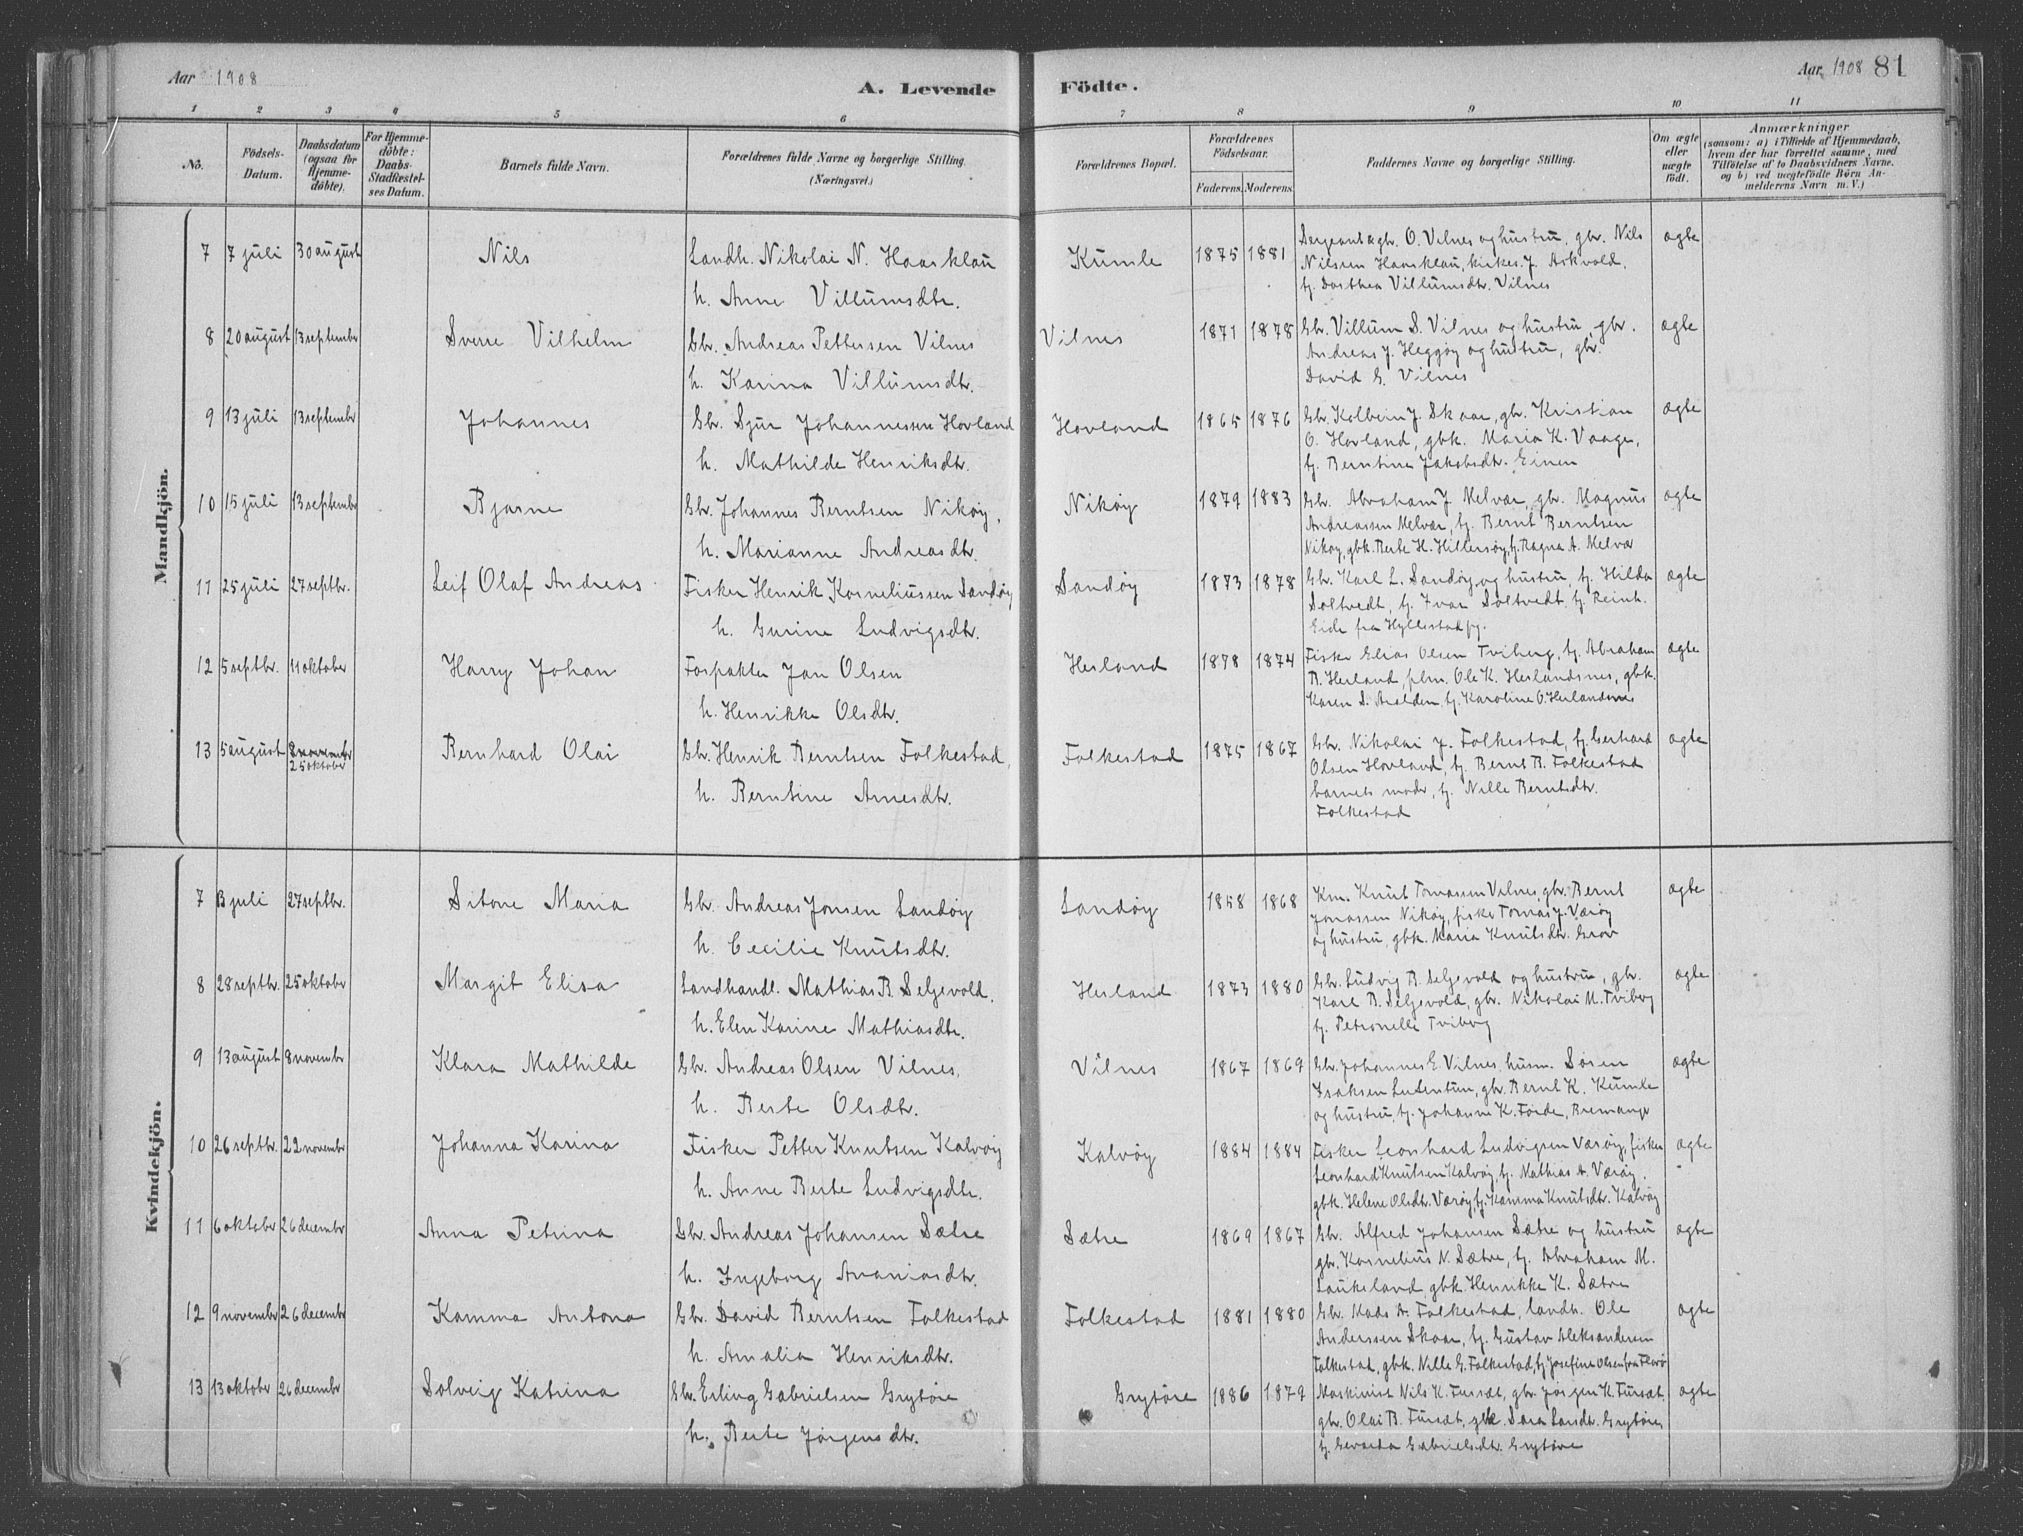 Aar 1908
A. Levende Födte.
Aar 1908 81
1 2 3 4 5 6 7 8 9 10 11
No.
Födsels-Datum.
Daabsdatum (ogsaa for Hjemmedöbte).
For Hjemmedöbte: Daabs-Stadfestelses Datum.
Barnets fulde Navn.
Forældrenes fulde Navne og borgerlige Stilling. (Næringsvei.)
Forældrenes Bopæl.
Forældrenes Födselsaar.
Faderens. Moderens.
Faddernes Navne og borgerlige Stilling.
Om ægte eller uægte födt.
Anmærkninger
(saasom: a) i Tilfælde af Hjemmedaab, hvem der har forrettet samme, med Tilföielse af to Daabsvidners Navne. og b) ved uægtefödte Börn Anmelderens Navn m. V.)
Mandkjön.
7 7 juli 30 august Nils Landh. Nikolai N. Haasklau Kumle 1875 1881 Sergeant & gbr. O. Vilnes og hustru, gbr. Nils ægte
h. Anne Villumsdtr. Nilsen Haasklau, kirkes. J. Askvold,
tj. Dorthea Villumsdtr. Vilnes
8 20 august 13 september Sverre Vilhelm Gbr. Andreas Pettersen Vilnes Vilnes 1871 1878 Gbr. Villum S. Vilnes og hustru, gbr. ægte
h. Karina Villumsdtr. Andreas J. Heggøy og hustru, gbr.
David G. Vilnes
9 13 juli 13 septembr Johannes Gbr. Sjur Johannessen Hovland Hovland 1865 1876 Gbr. Kolbein J. Skaar, gbr. Kristian ægte
h. Mathilde Henriksdtr. O. Hovland, gbk. Maria K. Vaage,
tj. Berntine Jakobsdtr. Einen
10 15 juli 13 septembr Bjarne Gbr. Johannes Berntsen Nikøy, Nikøy 1879 1883 Gbr. Abraham J. Melvær, gbr. Magnus ægte
h. Marianne Andreasdtr. Andreassen Melvær, tj. Bernt Berntsen
Nikøy, gbk. Berte H. Hillersøy, tj. Ragna A. Melvær
11 25 juli 27 septbr. Leif Olaf Andreas Fisker Henrik Korneliussen Sandøy Sandøy 1873 1878 Gbr. Karl L. Sandøy og hustru, tj. Hilda ægte
h. Gurine Ludvigsdtr. Soltvedt, tj. Ivar Soltvedt, tj. Reinh.
Eide fra Hyllestad pg.
12 5 septbr. 11 oktober Harry Johan Forpakter Jan Olsen Herland 1878 1874 Fisker Elias Olsen Tviberg, tj. Abraham ægte
h. Henrikke Olsdtr. B. Herland, plm. Ole K. Herlandsnes, gbk.
Karen S. Aralden, tj. Karoline O. Herlandsnes
13 5 august 8 november 25 oktober Bernhard Olai Gbr. Henrik Berntsen Folkestad, Folkestad 1875 1867 Gbr. Nikolai J. Folkestad, tj. Gerhard ægte
h. Berntine Arnesdtr. Olsen Hovland, tj. Bernt B. Folkestad
barnets moder, tj. Nille Berntsdtr.
Folkestad
Kvindekjön.
7 3 juli 27 septbr. Sitone Maria Gbr. Andreas Jonsen Sandøy Sandøy 1858 1868 Km. Knut Tomassen Vilnes, gbr. Bernt ægte
h. Cecilie Knutsdtr. Jonassen Nikøy, fisker Tomas J. Værøy
og hustru, gbk. Maria Knutsdtr. Grov
8 28 septbr. 25 oktobr Margit Elisa Landhandl. Mathias B. Seljevold, Herland 1873 1880 Gbr. Ludvig B. Seljevold og hustru, gbr. ægte
h. Elen Karine Mathiasdtr. Karl B. Seljevold, gbr. Nikolai M. Tviberg
tj. Petronelle Tviberg
9 13 august 8 novembr Klara Mathilde Gbr. Andreas Olsen Vilnes, Vilnes 1867 1869 Gbr. Johannes E. Vilnes, husm. Søren ægte
h. Berte Olsdtr. Isaksen Lutentun, gbr. Bernt K. Kumle
og hustru, tj. Johanne K. Førde, Bremanger
10 26 septbr. 22 novembr Johanna Karina Fisker Petter Knutsen Kalvøy Kalvøy 1884 1884 Fisker Leonhard Ludvigsen Værøy, fisker ægte
h. Anne Berte Ludvigsdtr. Leonhard Knutsen Kalvøy, tj. Mathias A. Værøy,
gbk. Helene Olsdtr. Værøy, tj. Kamma Knutsdtr. Kalvøy
11 6 oktober 26 decembr Anna Petrina Gbr. Andreas Johansen Sætre Sætre 1869 1867 Gbr. Alfred Johansen Sætre og hustru ægte
h. Ingeborg Ananiasdtr. gbr. Kornelius N. Sætre, tj. Abraham M.
Laukeland, gbk. Henrikke K. Sætre
12 9 novembr 26 decembr Kamma Antona Gbr. David Berntsen Folkestad Folkestad 1881 1880 Gbr. Mads A. Folkestad, landh. Ole ægte
h. Amalia Henriksdtr. Anderssen Skaar, tj. Gustav Aleksandersen
Folkestad, gbk. Nille G. Folkestad, tj. Josefine Olsen fra Florø
13 13 oktobr 26 decembr Solveig Katrina Gbr. Erling Gabrielsen Grytøre Grytøre 1886 1879 Maskinist Nils K. Fursæt, gbr. Jørgen K. Fursæt, ægte
h. Berte Jørgensdtr. gbr. Olai B. Fursæt, gbk. Sara Sandtr. Grytøren
tj. Gevarda Gabrielsdtr. Grytøre